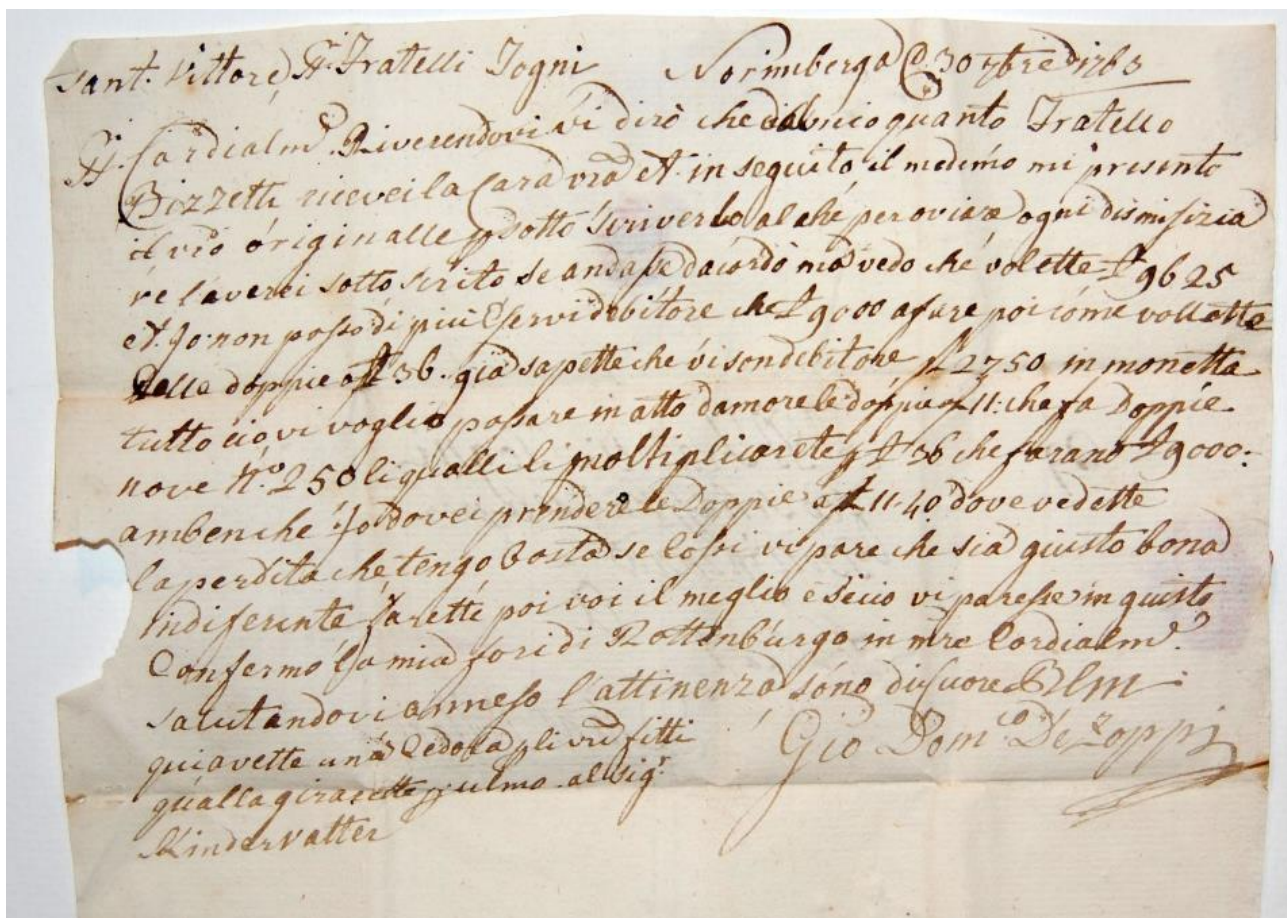 Sant. Vittore, Sri. Fratelli Togni Norimberga 30 7bre 1763
Cordialm. Riverendovi vi dirò che quanto Fratello
Bizzetti ricevei la Cara vra et in seguito il medemo mi presentò
il vro originalle p sotto scriverlo al ché per oviare ogni dismisizia
ve l'averei sotto scrito se andasse dacordo mà vedo ché volette £ 9625
et Jo non posso di più Eservi debitore che £ 9000 a fare poi come vollette
delle doppie a £ 36. già sapette che vi son debitore f 2750 in monetta
tutto ciò vi voglio pasare in atto d'amore le doppie a f 11: che fa Doppie
nove No. 250 li qualli li moltiplicarete p £ 36 che farano £ 9000:
ambenché Jo dovei prendere le Doppie a f 11.40 dove vedette
la perdita ché tengo basta se Cossi vi pare che sia giusto bona
indiferente farette poi voi il meglio e secio vi paresse in quisto
Confermo la mia fori di Rottenburgo in mre Cordialm.
salutandovi a meso l'attinenza sóno di Cuore Blm
qui avette una Cedola p li vri fitti Gio Dom.co De Zoppi
qualla girarette p ulmo al sigr.
Kindervatter